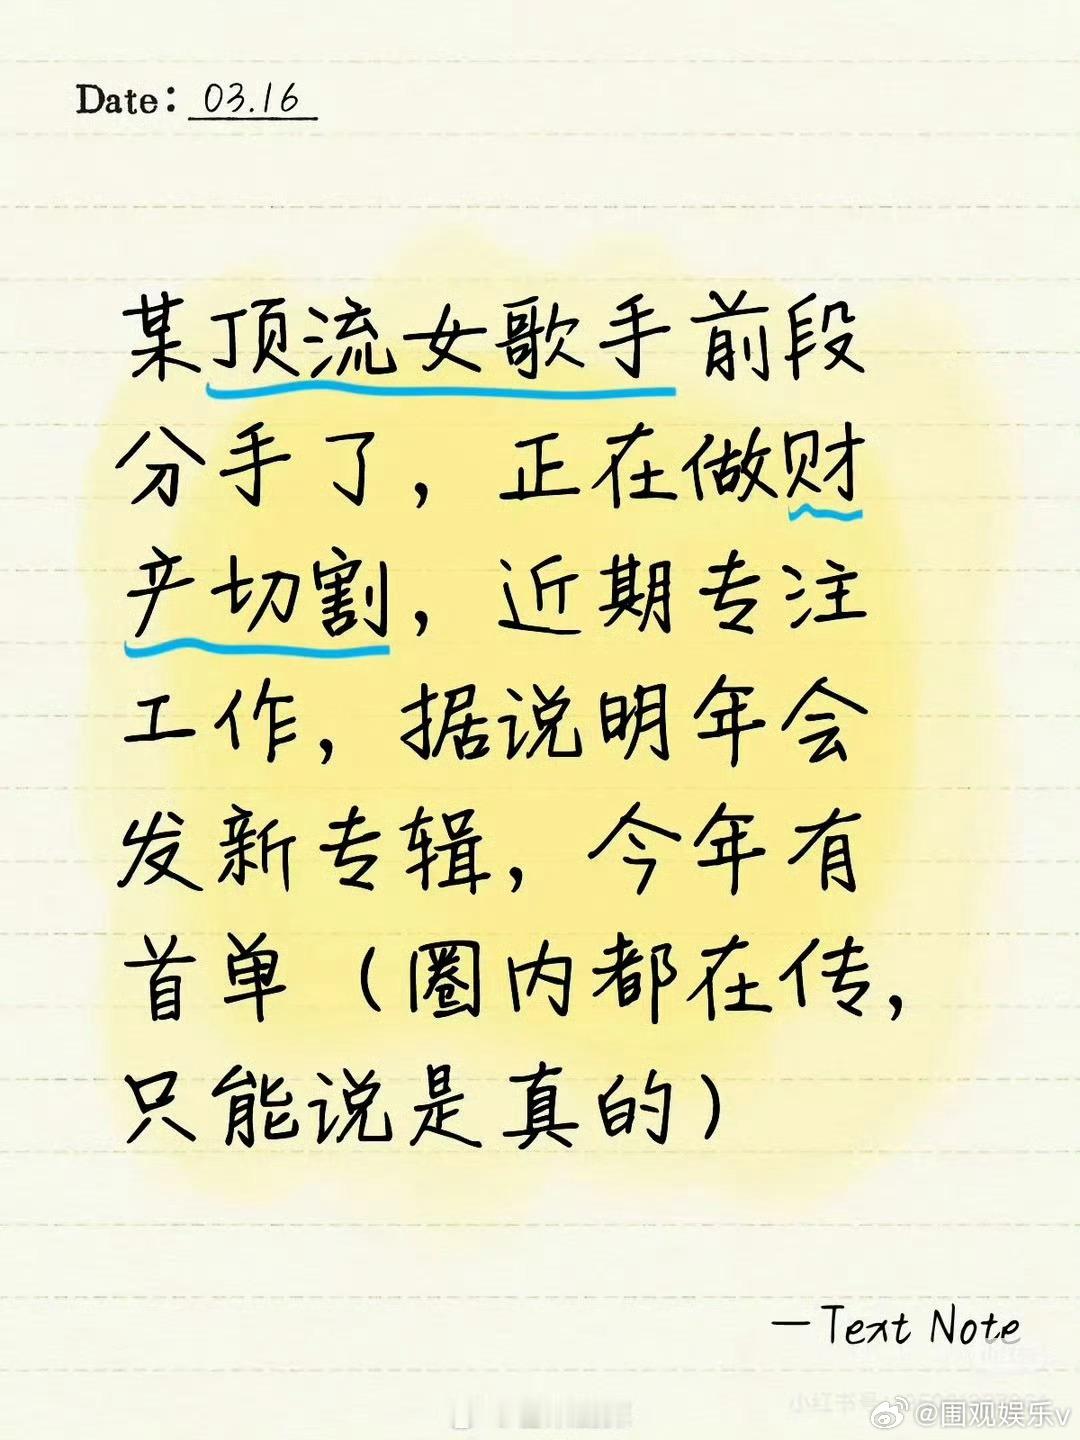 Date: 03.16
某顶流女歌手前段
分手了，正在做财
产切割，近期专注
工作，据说明年会
发新专辑，今年有
首单（圈内都在传，
只能说是真的）
—Text Note
@围观娱乐v